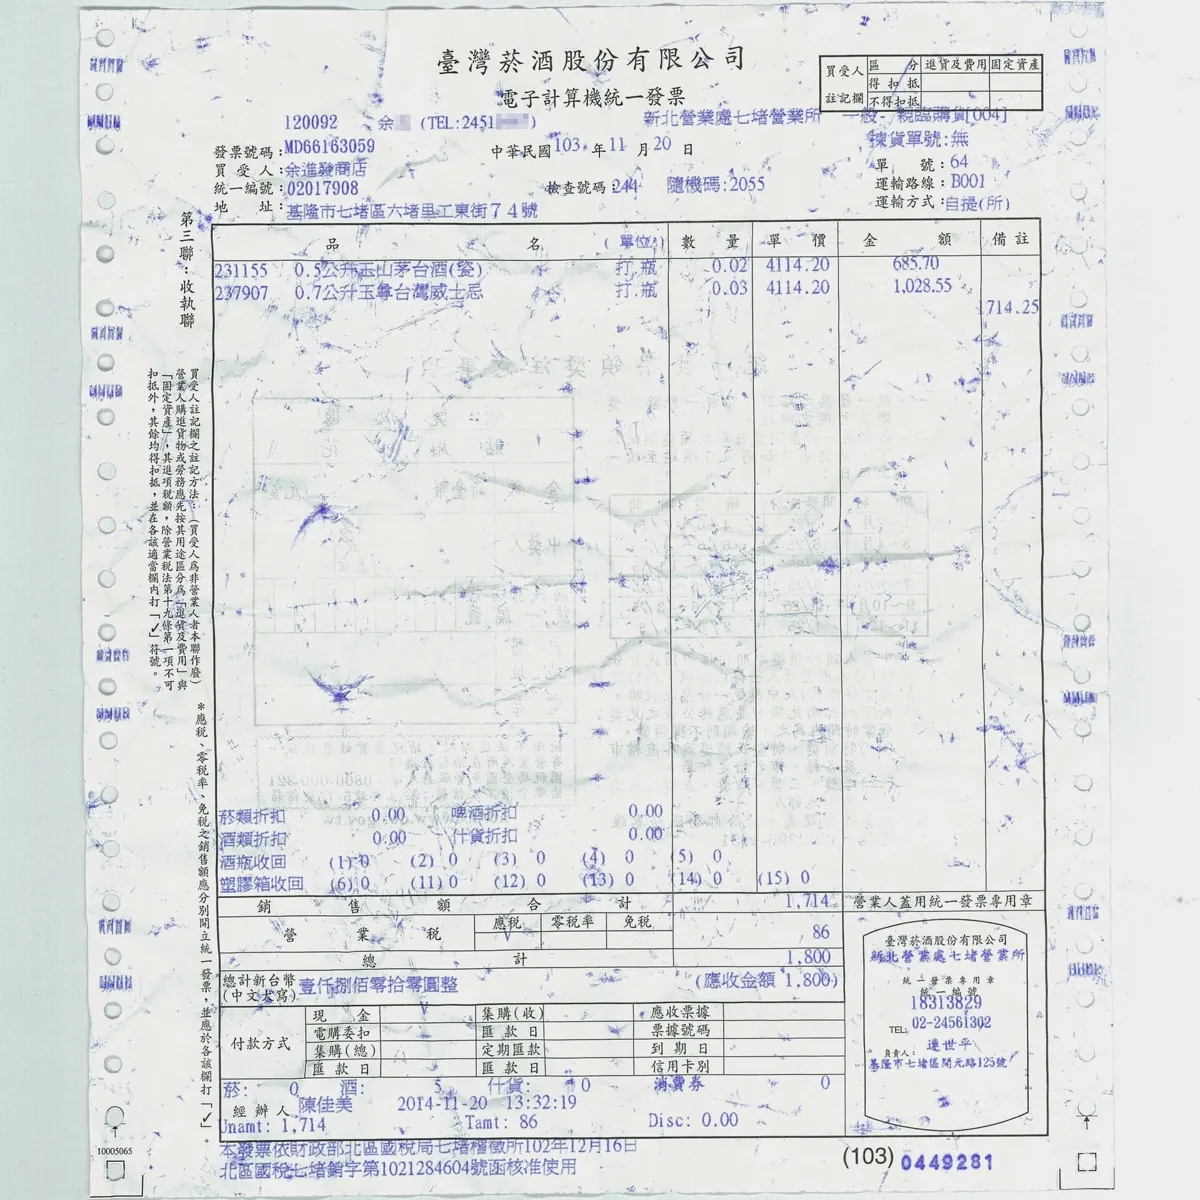 臺灣菸酒股份有限公司
電子計算機統一發票
買受人註記欄 區分 進貨及費用 固定資產
得扣抵
不得扣抵
120092 余 (TEL:2451 ) 新北營業處七堵營業所 一般- 親臨購貨[004]
發票號碼:MD66163059 中華民國103年11月20日 揀貨單號:無
買受人:余進發商店 單號:64
統一編號:02017908 檢查號碼:244 隨機碼:2055 運輸路線:B001
地址:基隆市七堵區六堵里工東街74號 運輸方式:自提(所)
第三聯:收執聯
品名 (單位) 數量 單價 金額 備註
231155 0.5公升玉山茅台酒(瓷) 打.瓶 0.02 4114.20 685.70
237907 0.7公升玉尊台灣威士忌 打.瓶 0.03 4114.20 1,028.55
1714.25
買受人註記欄之註記方法:(買受人為非營業人者本聯作廢)
營業人購進貨物或勞務應先按其用途區分為「進貨及費用」與
「固定資產」,其進項稅額,除營業稅法第十九條第一項不可
扣抵外,其餘均得扣抵,並在各該適當欄內打「✓」符號。
*應稅、零稅率、免稅之銷售額應分別開立統一發票,並應於各該欄打「✓」。
菸類折扣 0.00 啤酒折扣 0.00
酒類折扣 0.00 什貨折扣 0.00
酒瓶收回 (1) 0 (2) 0 (3) 0 (4) 0 (5) 0
塑膠箱收回 (6) 0 (11) 0 (12) 0 (13) 0 (14) 0 (15) 0
銷售額合計 1,714 營業人蓋用統一發票專用章
營業稅 應稅 V 零稅率 免稅 86
總計 1,800
總計新台幣(中文大寫) 壹仟捌佰零拾零圓整 (應收金額 1,800)
臺灣菸酒股份有限公司
新北營業處七堵營業所
統一發票專用章
統一編號
18313829
TEL: 02-24561302
負責人: 連世平
基隆市七堵區開元路125號
付款方式 現金 V 集購(收) 應收票據
電購委扣 匯款日 票據號碼
集購(總) 定期匯款 到期日
匯款日 匯款日 信用卡別
菸: 0 酒: 5 什貨: 0 消費券 0
經辦人 陳佳美 2014-11-20 13:32:19
Unamt: 1,714 Tamt: 86 Disc: 0.00
本發票依財政部北區國稅局七堵稽徵所102年12月16日
北區國稅七堵銷字第1021284604號函核准使用
10005065
(103) 0449281